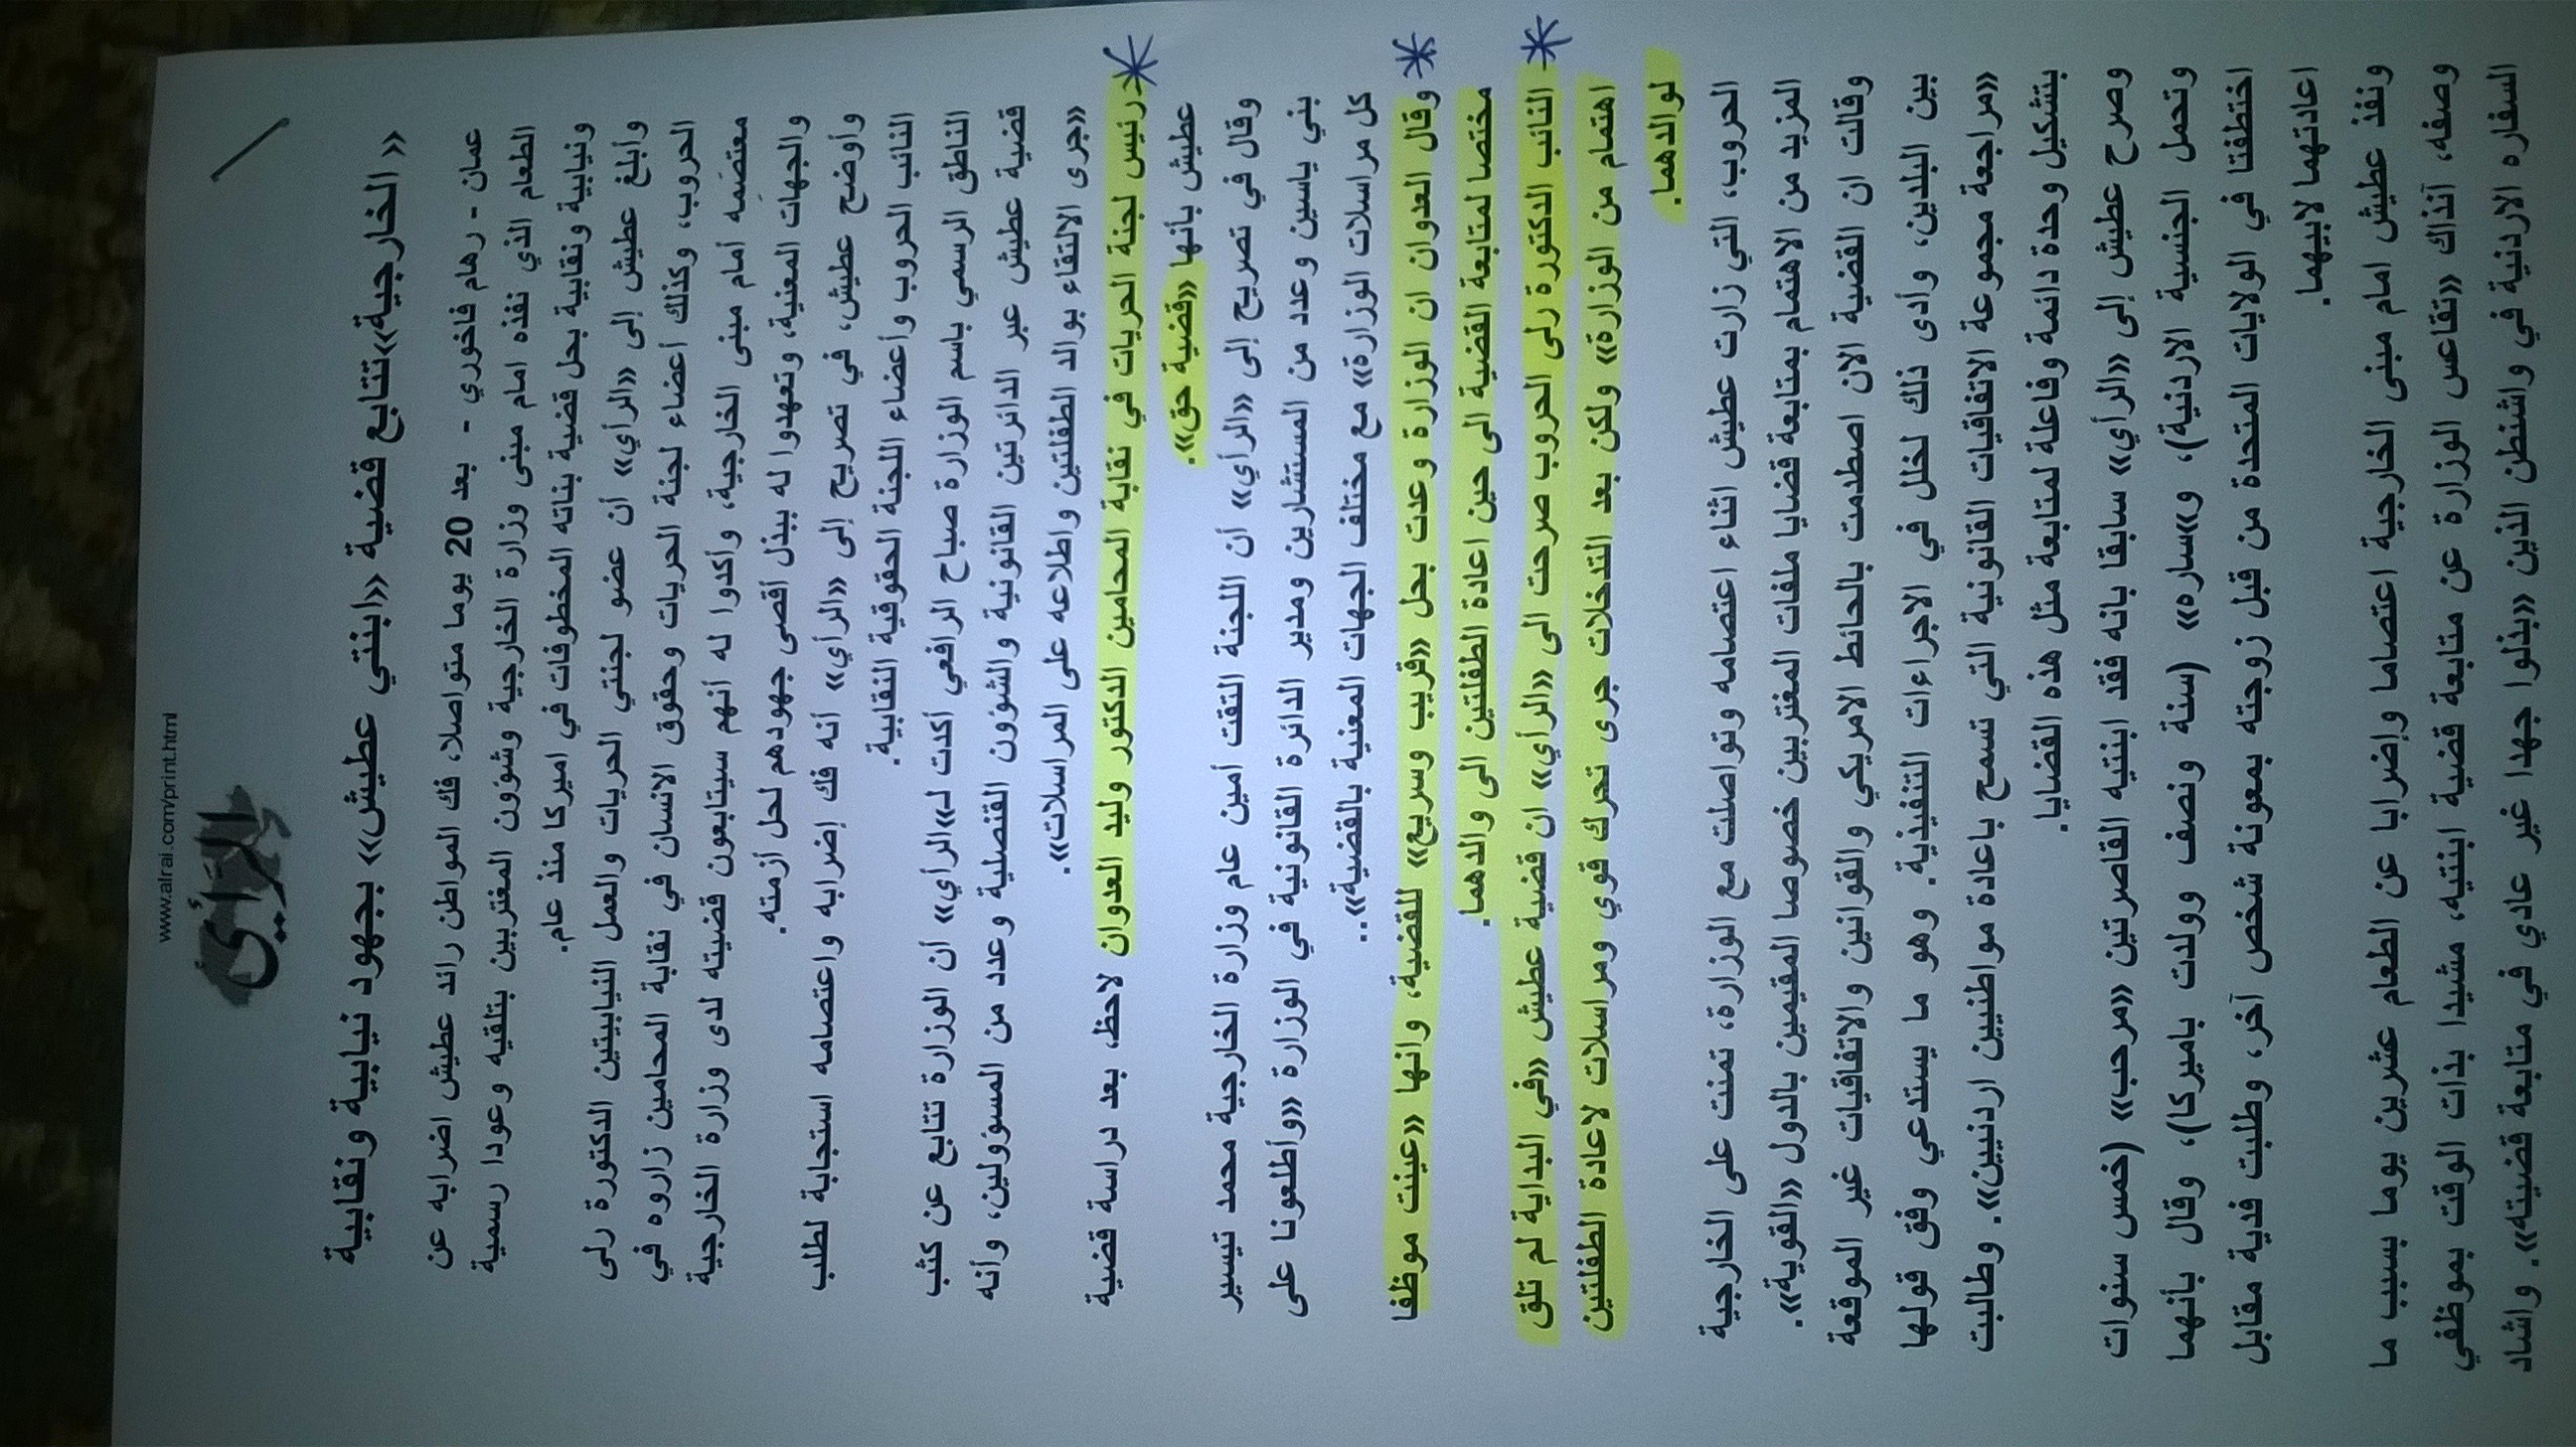 www.alrai.com/print.html
الرأي
«الخارجية»تتابع قضية «ابنتي عطيش» بجهود نيابية ونقابية
عمان - رهام فاخوري - بعد 20 يوما متواصلا، فك المواطن رائد عطيش اضرابه عن
الطعام الذي نفذه امام مبنى وزارة الخارجية وشؤون المغتربين بتلقيه وعودا رسمية
ونيابية ونقابية بحل قضية بناته المخطوفات في اميركا منذ عام.
وأبلغ عطيش إلى «الرأي» أن عضو لجنتي الحريات والعمل النيابيتين الدكتورة رلى
الحروب، وكذلك أعضاء لجنة الحريات وحقوق الانسان في نقابة المحامين زاروه في
معتصمه أمام مبنى الخارجية، وأكدوا له أنهم سيتابعون قضيته لدى وزارة الخارجية
والجهات المعنية، وتعهدوا له ببذل أقصى جهودهم لحل أزمته.
وأوضح عطيش، في تصريح إلى «الرأي» أنه فك إضرابه واعتصامه استجابة لطلب
النائب الحروب وأعضاء اللجنة الحقوقية النقابية.
الناطق الرسمي باسم الوزارة صباح الرافعي أكدت لـ»الرأي» أن الوزارة تتابع عن كثب
قضية عطيش عبر الدائرتين القانونية والشؤون القنصلية وعدد من المسؤولين، وأنه
«جرى الالتقاء بوالد الطفلتين واطلاعه على المراسلات».
رئيس لجنة الحريات في نقابة المحامين الدكتور وليد العدوان لاحظ، بعد دراسة قضية
عطيش بأنها «قضية حق».
وقال في تصريح إلى «الرأي» أن اللجنة التقت أمين عام وزارة الخارجية محمد تيسير
بني ياسين وعدد من المستشارين ومدير الدائرة القانونية في الوزارة «وأطلعونا على
كل مراسلات الوزارة» مع مختلف الجهات المعنية بالقضية»..
وقال العدوان ان الوزارة وعدت بحل «قريب وسريع» للقضية، وانها «عينت موظفا
مختصا لمتابعة القضية الى حين اعادة الطفلتين الى والدهما.
النائب الدكتورة رلى الحروب صرحت الى «الرأي» ان قضية عطيش «في البداية لم تلق
اهتمام من الوزارة» ولكن بعد التدخلات جرى تحرك قوي ومراسلات لاعادة الطفلتين
لوالدهما.
الحروب، التي زارت عطيش اثناء اعتصامه وتواصلت مع الوزارة، تمنت على الخارجية
المزيد من الاهتمام بمتابعة قضايا ملفات المغتربين خصوصا المقيمين بالدول «القوية».
وقالت ان القضية الان اصطدمت بالحائط الامريكي والقوانين والاتفاقيات غير الموقعة
بين البلدين، وأدى ذلك لخلل في الاجراءات التنفيذية. وهو ما يستدعي وفق قولها
«مراجعة مجموعة الاتفاقيات القانونية التي تسمح باعادة مواطنيين اردنيين». وطالبت
بتشكيل وحدة دائمة وفاعلة لمتابعة مثل هذه القضايا.
وصرح عطيش إلى «الرأي» سابقا بانه فقد ابنتيه القاصرتين «مرحب» (خمس سنوات
وتحمل الجنسية الاردنية)، و»ساره» (سنة ونصف وولدت باميركا)، وقال بأنهما
اختطفتا في الولايات المتحدة من قبل زوجته بمعونة شخص آخر، وطلبت فدية مقابل
اعادتهما لابيهما.
ونفذ عطيش امام مبنى الخارجية اعتصاما وإضرابا عن الطعام عشرين يوما بسبب ما
وصفه، آنذاك «تقاعس الوزارة عن متابعة قضية ابنتيه، مشيدا بذات الوقت بموظفي
السفاره الاردنية في واشنطن الذين «بذلوا جهدا غير عادي في متابعة قضيته». واشاد